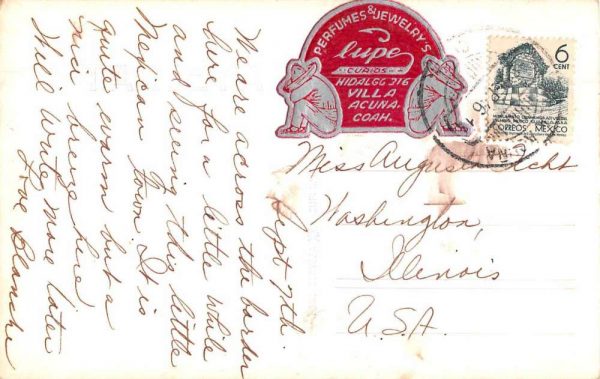 PERFUMES & JEWELRY'S
Lupe
CURIOS
HIDALGO 316
VILLA
ACUNA,
COAH.
6
CENT
CORREOS MEXICO
Sept 7th
We are across the border
here for a little while
and seeing this little
Mexican town. It is
quite warm but a
nice breeze here.
Will write more later
Love Blanche
Miss Augusta
Washington,
Illinois
U.S.A.